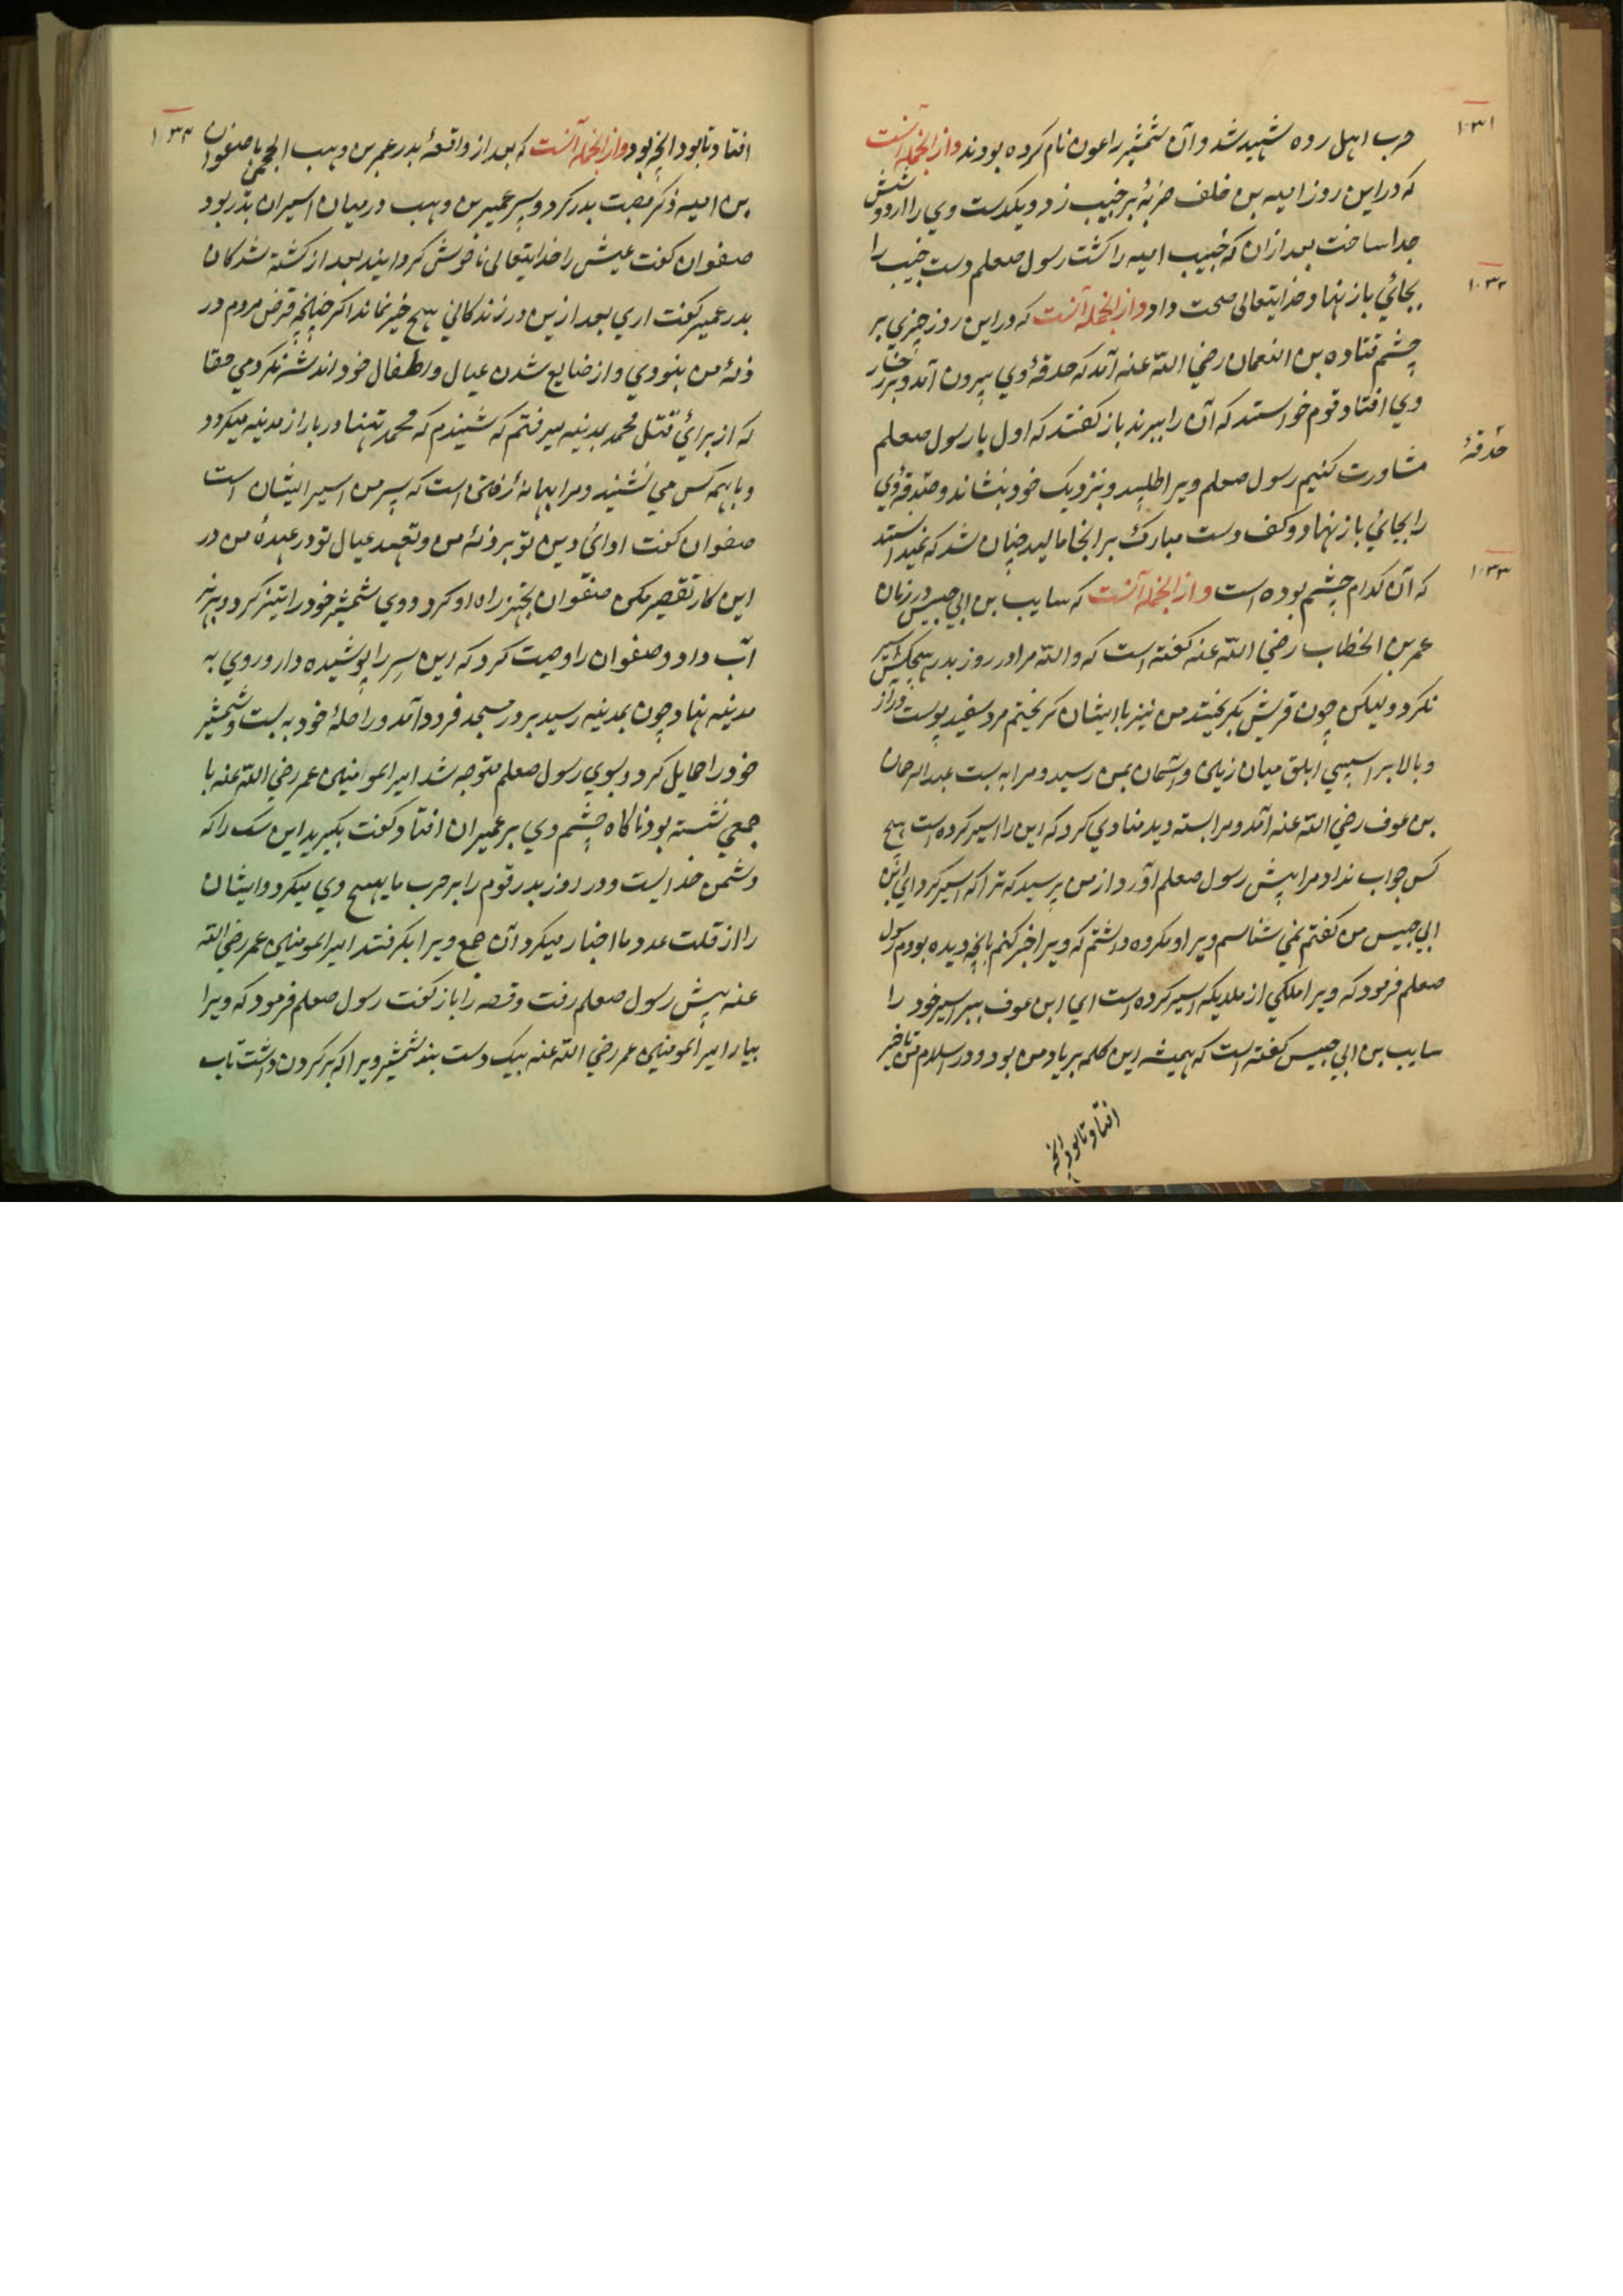 ۱۰۳۱
حرب اهل رده شهید شد و آن شمشیر را عون نام کرده بودند و از انجمله آنست
که در این روز امیه بن خلف ضربهٔ بر خبیب زد و یکدست وی را از دوشش
جدا ساخت بعد از ان که خبیب امیه را کشت رسول صعلم دست خبیب را
۱۰۳۲
بجائي باز نهاد خدایتعالی صحت داد و از انجمله آنست که در این روز چیزي بر
چشم قتاده بن النعمان رضي الله عنه آمد که حدقهٔ وي بیرون آمد و بر رخسار
وي افتاد قوم خواستند که آن را ببرند باز کفتند که اول با رسول صعلم
حدقهٔ
مشاورت کنیم رسول صعلم ویرا طلبید و بنزدیک خود بنشاند و حدقهٔ وي
را بجائي باز نهاد و کف دست مبارک بر انجا مالید چنان شد که نمیدانستند
۱۰۳۳
که آن کدام چشم بوده است و از انجمله آنست که سایب بن ابي حبیس در زمان
عمر بن الخطاب رضي الله عنه کفته است که والله مرا در روز بدر هیچکس اسیر
نکرد و لیکن چون قریش بکریختند من نیز با ایشان کریختم مرد سفید پوست دراز
و بالا بر اسپي ابلق میان زمین و آسمان بمن رسید و مرا به بست عبد الرحمان
بن عوف رضي الله عنه آمد و مرا بسته دید منادي کرد که این را اسیر کرده است هیچ
کس جواب نداد مرا پیش رسول صعلم آورد از من پرسید که ترا که اسیر کرد اي ابن
ابي حبیس من کفتم نمي شناسم ویرا و مکروه داشتم که ویرا خبر کنم بانچه دیده بودم رسول
صعلم فرمود که ویرا ملکي از ملایکه اسیر کرده است اي ابن عوف ببر اسیر خود را
سایب بن ابي حبیس کفته است که همیشه این کلمه بر یاد من بود و در اسلام من تاخیر
افتاد تا بود انچه
۱۰۳۴
افتاد تا بود انچه بود و از انجمله آنست که بعد از واقعهٔ بدر عمیر بن وهب الجمحي با صفوان
بن امیه ذکر مصیبت بدر کرد و پسر عمیر بن وهب در میان اسیران بدر بود
صفوان کفت عیش را خدایتعالی ناخوش کردانید بعد از کشته شدکان
بدر عمیر کفت اري بعد ازین در زندکاني هیچ خیر نماند اکر چنانچه قرض مردم در
ذمهٔ من نبودي و از ضایع شدن عیال و اطفال خود اندیشه نکردمي حقا
که از براي قتل محمد بمدینه میرفتم که شنیدم که محمد تنها در بازار مدینه میکردد
و با همه کس مي نشیند و مرا بهانهٔ است که پسر من اسیر ایشان است
صفوان کفت اداي دین تو بر ذمهٔ من و تعهد عیال تو در عهدهٔ من در
این کار تقصیر مکن صفوان تجهیز راه او کرد و وي شمشیر خود را تیز کرد و بزهر
آب داد و صفوان را وصیت کرد که این سر را پوشیده دار و روي به
مدینه نهاد چون بمدینه رسید بر در مسجد فرود آمد و راحلهٔ خود به بست و شمشیر
خود را حمایل کرد و بسوي رسول صعلم متوجه شد امیر المومنین عمر رضي الله عنه با
جمعي نشسته بود ناکاه چشم وي بر عمیر ان افتاد کفت بکیرید این سک را که
دشمن خداست و در روز بدر قوم را بر حرب ما تهییج وي میکرد و ایشان
را از قلت عدد ما اخبار میکرد آن جمع ویرا بکرفتند امیر المومنین عمر رضي الله
عنه پیش رسول صعلم رفت و قصه را باز کفت رسول صعلم فرمود که ویرا
بیار امیر المومنین عمر رضي الله عنه بیک دست بند شمشیر ویرا که بر کردن داشت تاب